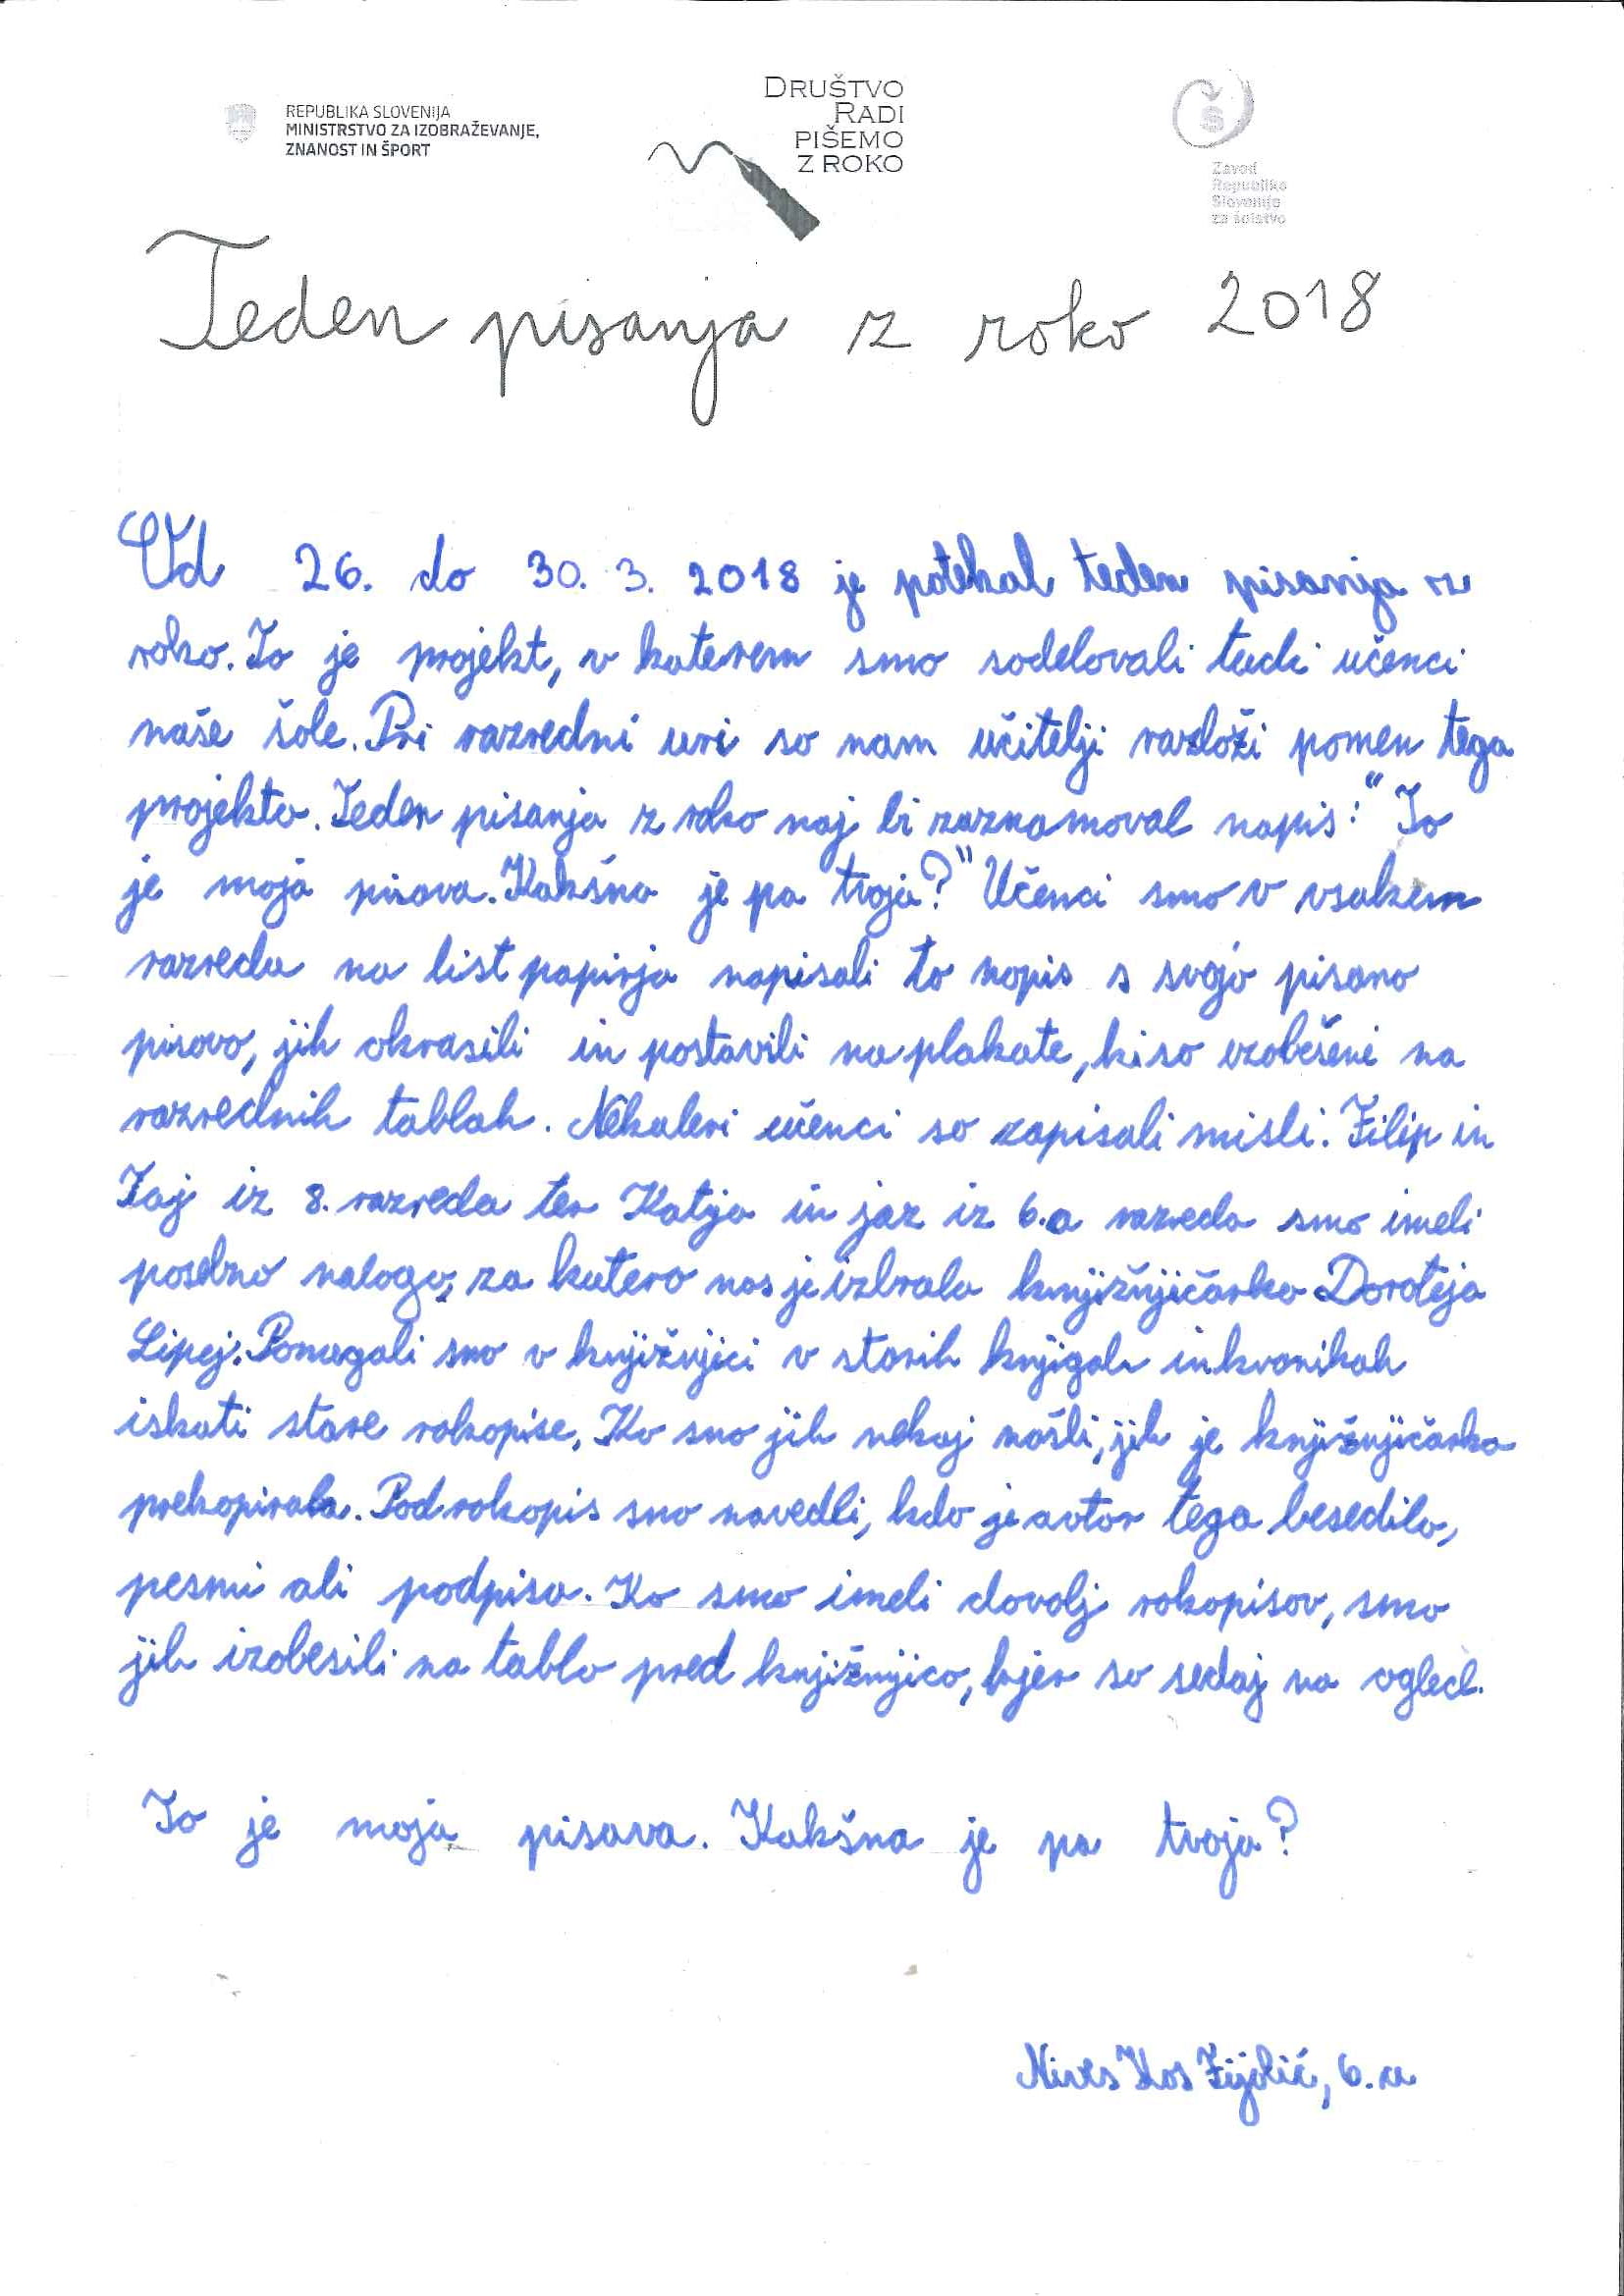 REPUBLIKA SLOVENIJA
MINISTRSTVO ZA IZOBRAŽEVANJE,
ZNANOST IN ŠPORT
DRUŠTVO
RADI
PIŠEMO
Z ROKO
Zavod
Republike
Slovenije
za šolstvo
Teden pisanja z roko 2018
Od 26. do 30. 3. 2018 je potekal teden pisanja z
roko. To je projekt, v katerem smo sodelovali tudi učenci
naše šole. Pri razredni uri so nam učitelji razloži pomen tega
projekta. Teden pisanja z roko naj bi zaznamoval napis: "To
je moja pisava. Kakšna je pa tvoja?" Učenci smo v vsakem
razredu na list papirja napisali to napis s svojo pisano
pisavo, jih okrasili in postavili na plakate, ki so izobešeni na
razrednih tablah. Nekateri učenci so zapisali misli. Filip in
Taj iz 8. razreda ter Katja in jaz iz 6.a razreda smo imeli
posebno nalogo, za katero nas je izbrala knjižnjičarka Doroteja
Lipej. Pomagali smo v knjižnjici v starih knjigah in kronikah
iskati stare rokopise. Ko smo jih nekaj našli, jih je knjižnjičarka
prekopirala. Pod rokopis smo navedli, kdo je avtor tega besedila,
pesmi ali podpisa. Ko smo imeli dovolj rokopisov, smo
jih izobesili na tablo pred knjižnjico, kjer so sedaj na ogled.
To je moja pisava. Kakšna je pa tvoja?
Nives Kos 6.a